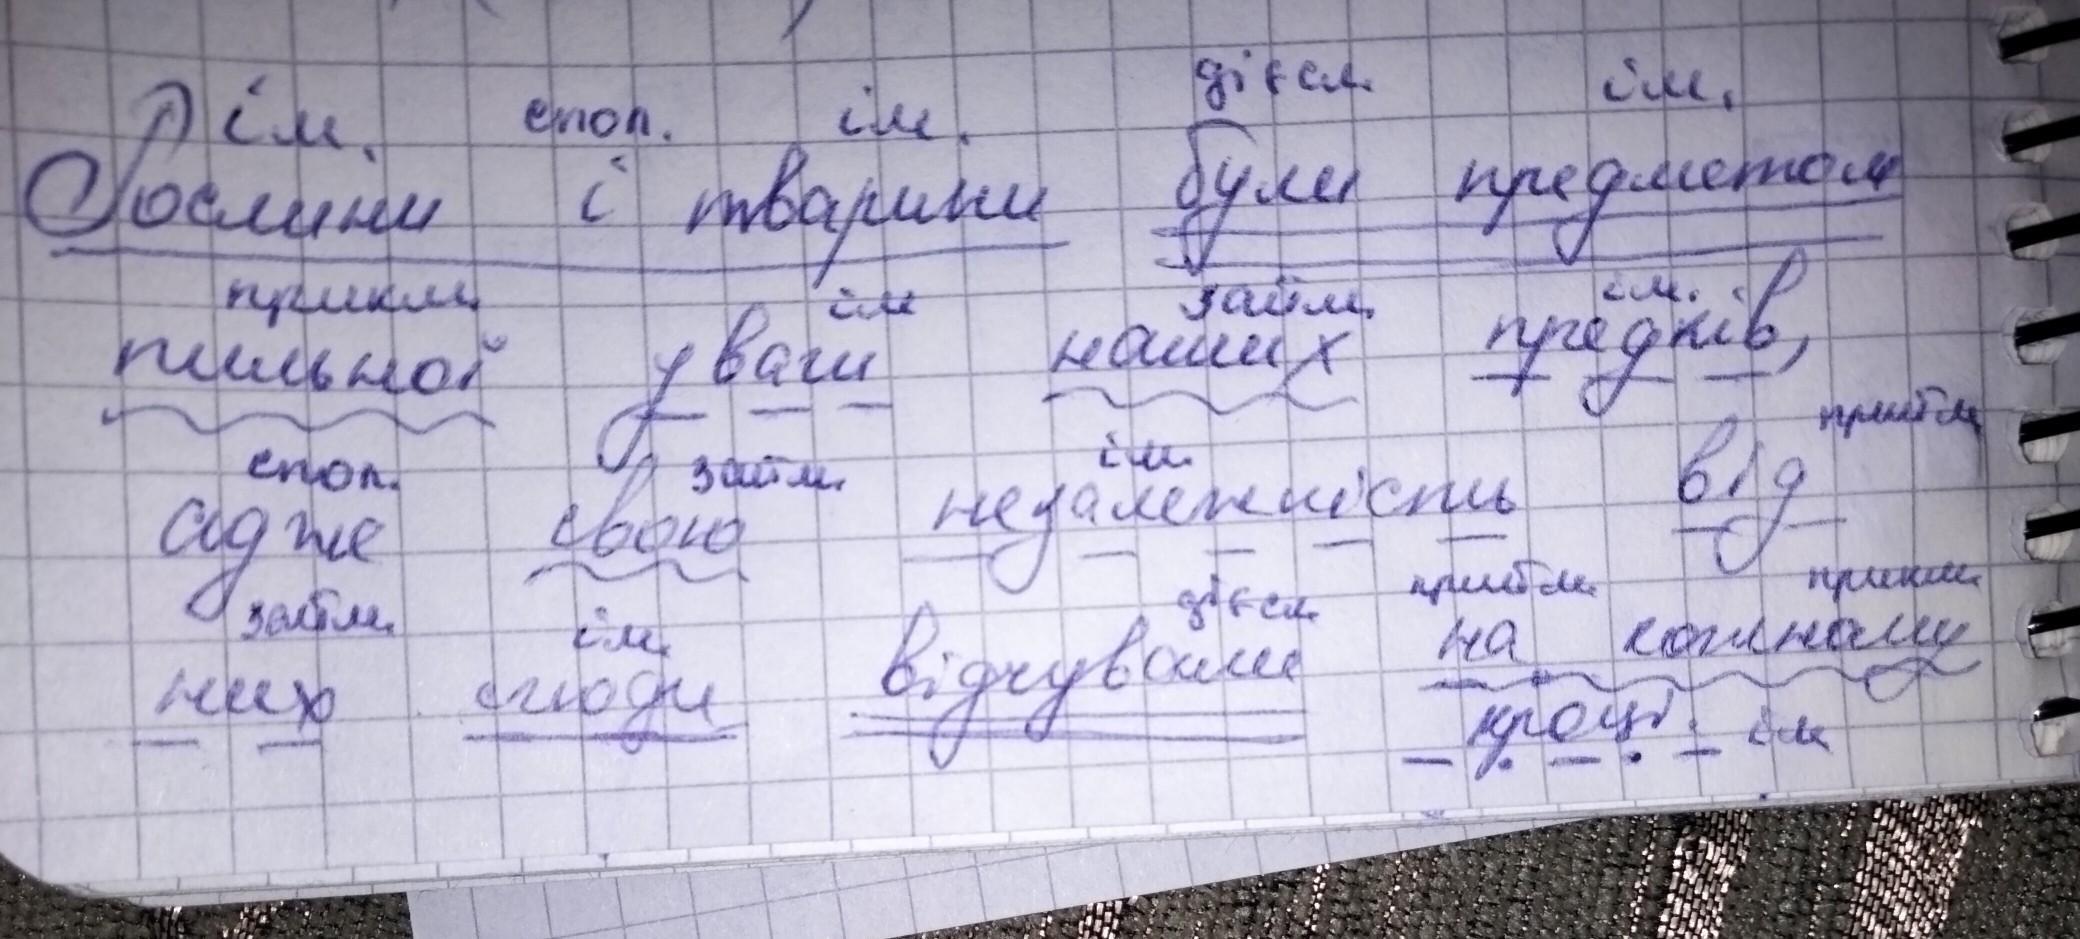 ім. спол. ім. дієсл. ім.
Рослини і тварини були предметом
прикм. ім займ. ім.
пильної уваги наших предків,
спол. займ. ім. прийм
адже свою незалежність від
займ. ім. дієсл. прийм. прикм.
них люди відчували на кожному
кроці. ім